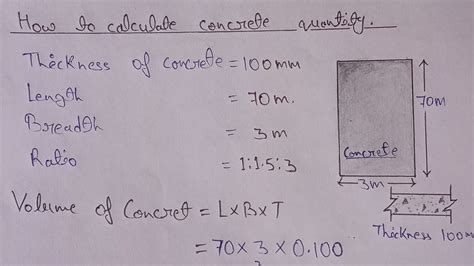 How to calculate concrete quantity.
Thickness of concrete = 100mm
Length = 70m.
Breadth = 3m
Ratio = 1:1.5:3
Volume of Concret = L×B×T
= 70×3×0.100
3
70m
Concrete
3m
Thickness 100m